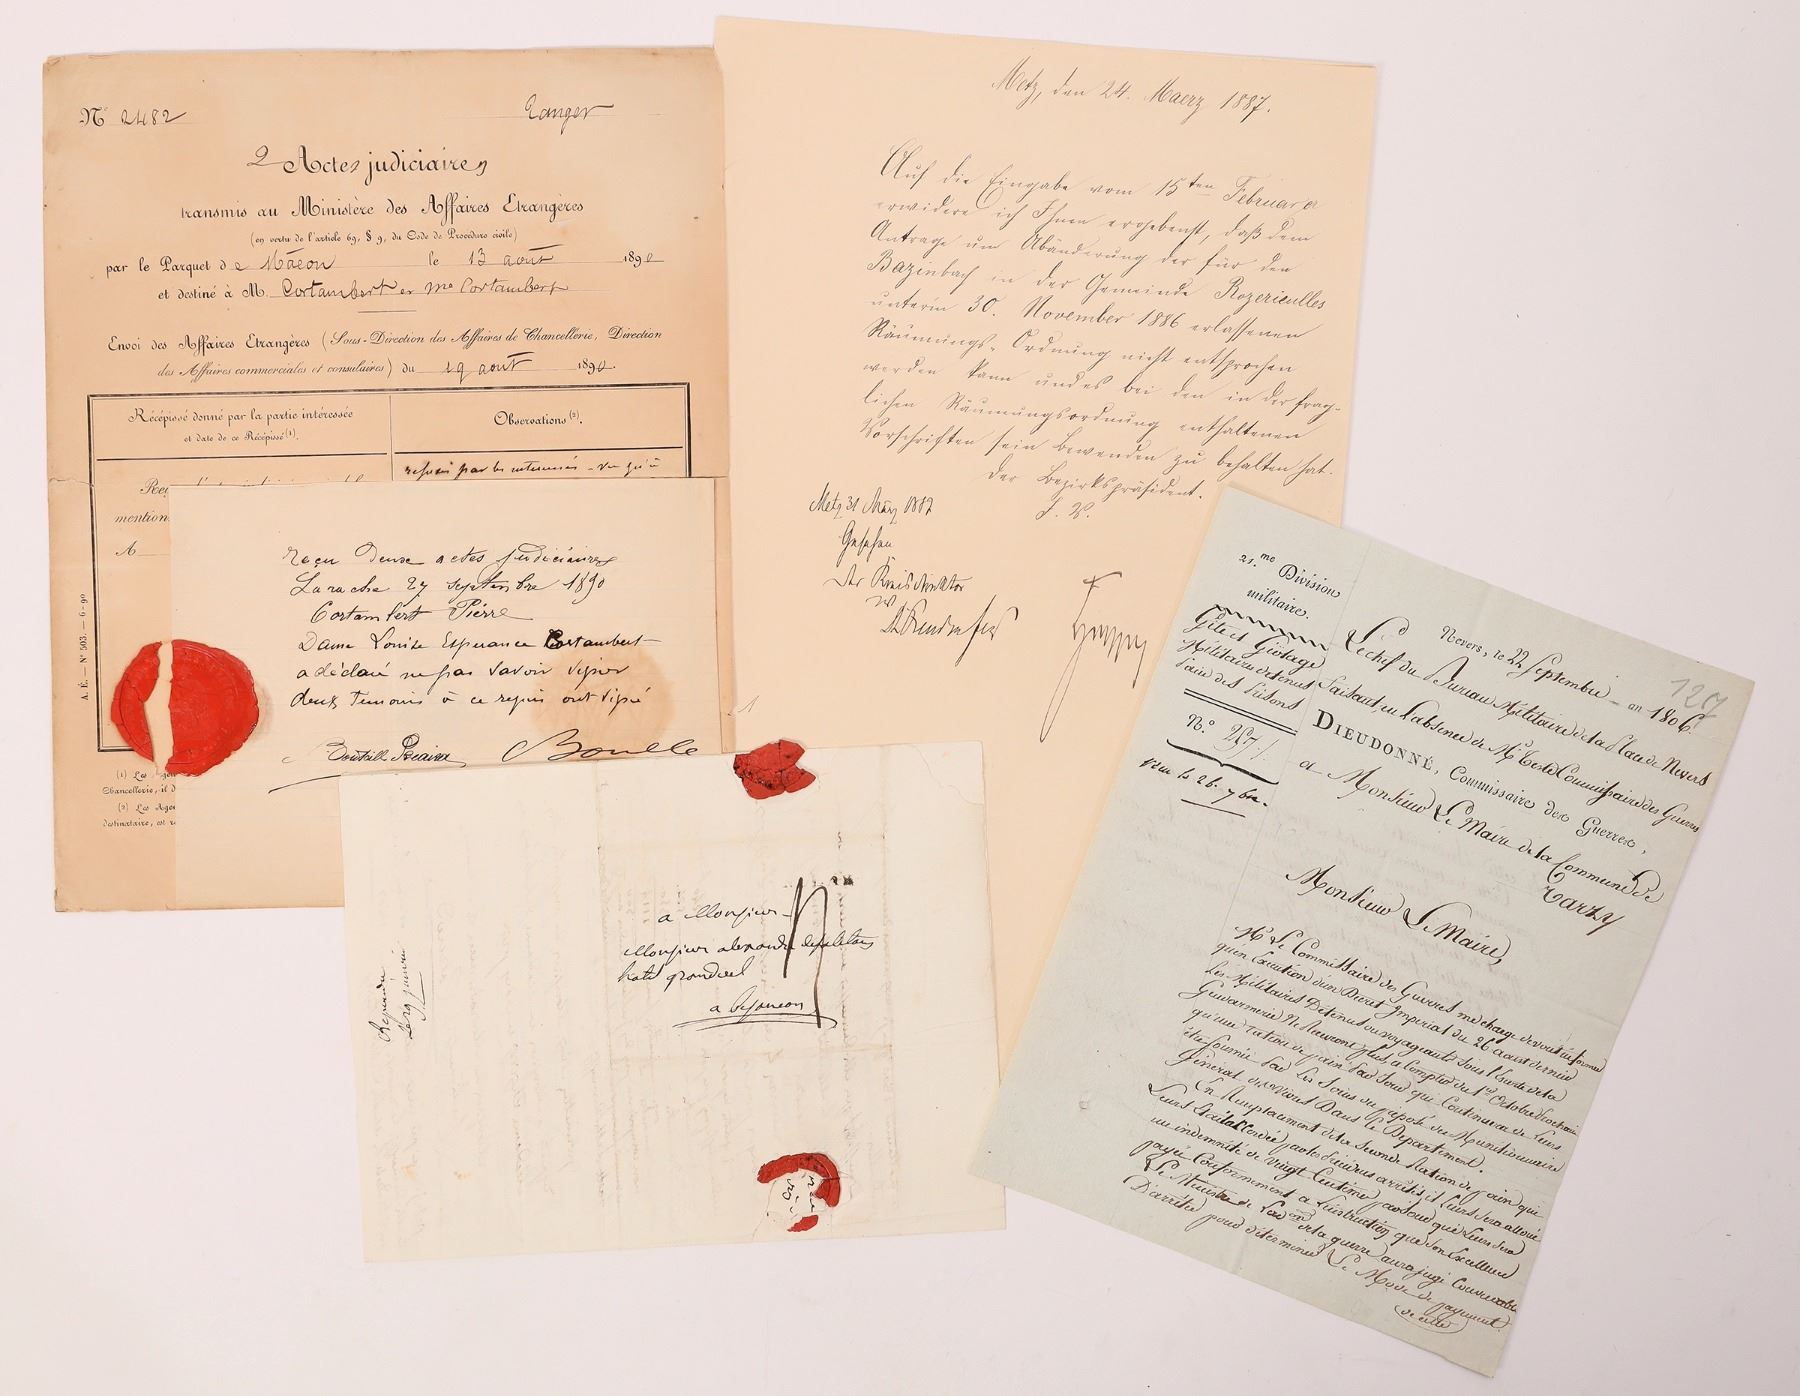 Nº 2482
Tanger
2 Actes judiciaires
transmis au Ministère des Affaires Etrangères
(en vertu de l'article 69, § 9, du Code de Procédure civile)
par le Parquet de Mâcon le 13 août 1890
et destiné à M. Cortambert et Me Cortambert
Envoi des Affaires Etrangères (Sous-Direction des Affaires de Chancellerie, Direction
des Affaires commerciales et consulaires) du 19 août 1890.
Récépissé donné par la partie intéressée
et date de ce Récépissé (1).
Observations (2).
refusés par les intéressés - vu qu'à
Reç
mention
A
A. É. — Nº 503. — 6-90
(1) Les
Chancellerie, il d
(2) Les Age
destinataire, est r
reçu deux actes judiciaires
Larache 27 septembre 1890
Cortambert Pierre
Dame Louise Esperance Cortambert
a déclaré ne pas savoir signer
deux temoins à ce requis ont signé
Boulle
Metz, den 24. Maerz 1887.
Auf die Eingabe vom 15ten Februar cr
erwidere ich Ihnen ergebenst, daß dem
Antrage um Abänderung der für den
Bazinbach in der Gemeinde Rozerieulles
unterm 30. November 1886 erlassenen
Räumungs-Ordnung nicht entsprochen
werden kann und es bei den in der frag-
lichen Räumungsordnung enthaltenen
Vorschriften sein Bewenden zu behalten hat.
Der Bezirkspräsident.
J. V.
Metz 31 März 1887
Gesehen
Der Kreisdirektor
a Monsieur
Monsieur alexandre
hotel grandvel
a besançon
Repondu
Le 29 janvier
21.me Division
militaire.
Gîte et Geôlage
Militaires detenus
Pain des Prisons
Nº 257
Reçu le 26. 7bre.
127
Nevers, le 22 Septembre an 1806.
Le chef du Bureau Militaire de la Place de Nevers
Faisant en l'absence de Mr Testé Commissaire des Guerres
DIEUDONNÉ, Commissaire des Guerres,
a Monsieur Le Maire de la Commune de
Tarzy
Monsieur Le Maire,
Mr Le Commissaire des Guerres me charge de vous informer
qu'en Execution d'un Décret Imperial du 26 aoust dernier
Les Militaires Détenus ou voyageants sous l'Escorte de la
Gendarmerie Ne Recevront plus, a Compter du 1er Octobre Prochain
qu'une ration de pain par Jour qui Continuera de Leurs
être fournie par Les Soins du préposé du Munitionnaire
Général des vivres Dans le Département.
En Remplacement de la Seconde Ration de pain qui
Leurs était accordée par les précédens arrêtés, il Leurs sera alloué
une indemnité de vingt Centimes par Jour qui Leurs sera
payée Conformement a L'instruction que Son Excellence
Le Ministre de la guerre aura jugé Convenable
D'arrêter pour déterminer Le Mode de payement
de cette